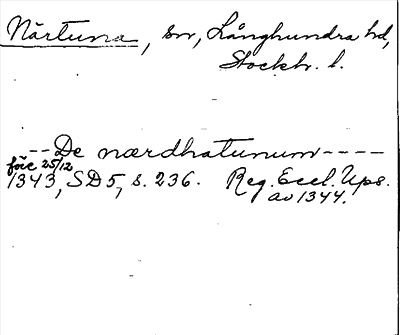 Närtuna, sn, Långhundra hd,
Stockh. l.
-- De nærdhatunum ----
före 25/12
1343, SD 5, s. 236. Reg. Eccl. Ups.
av 1344.